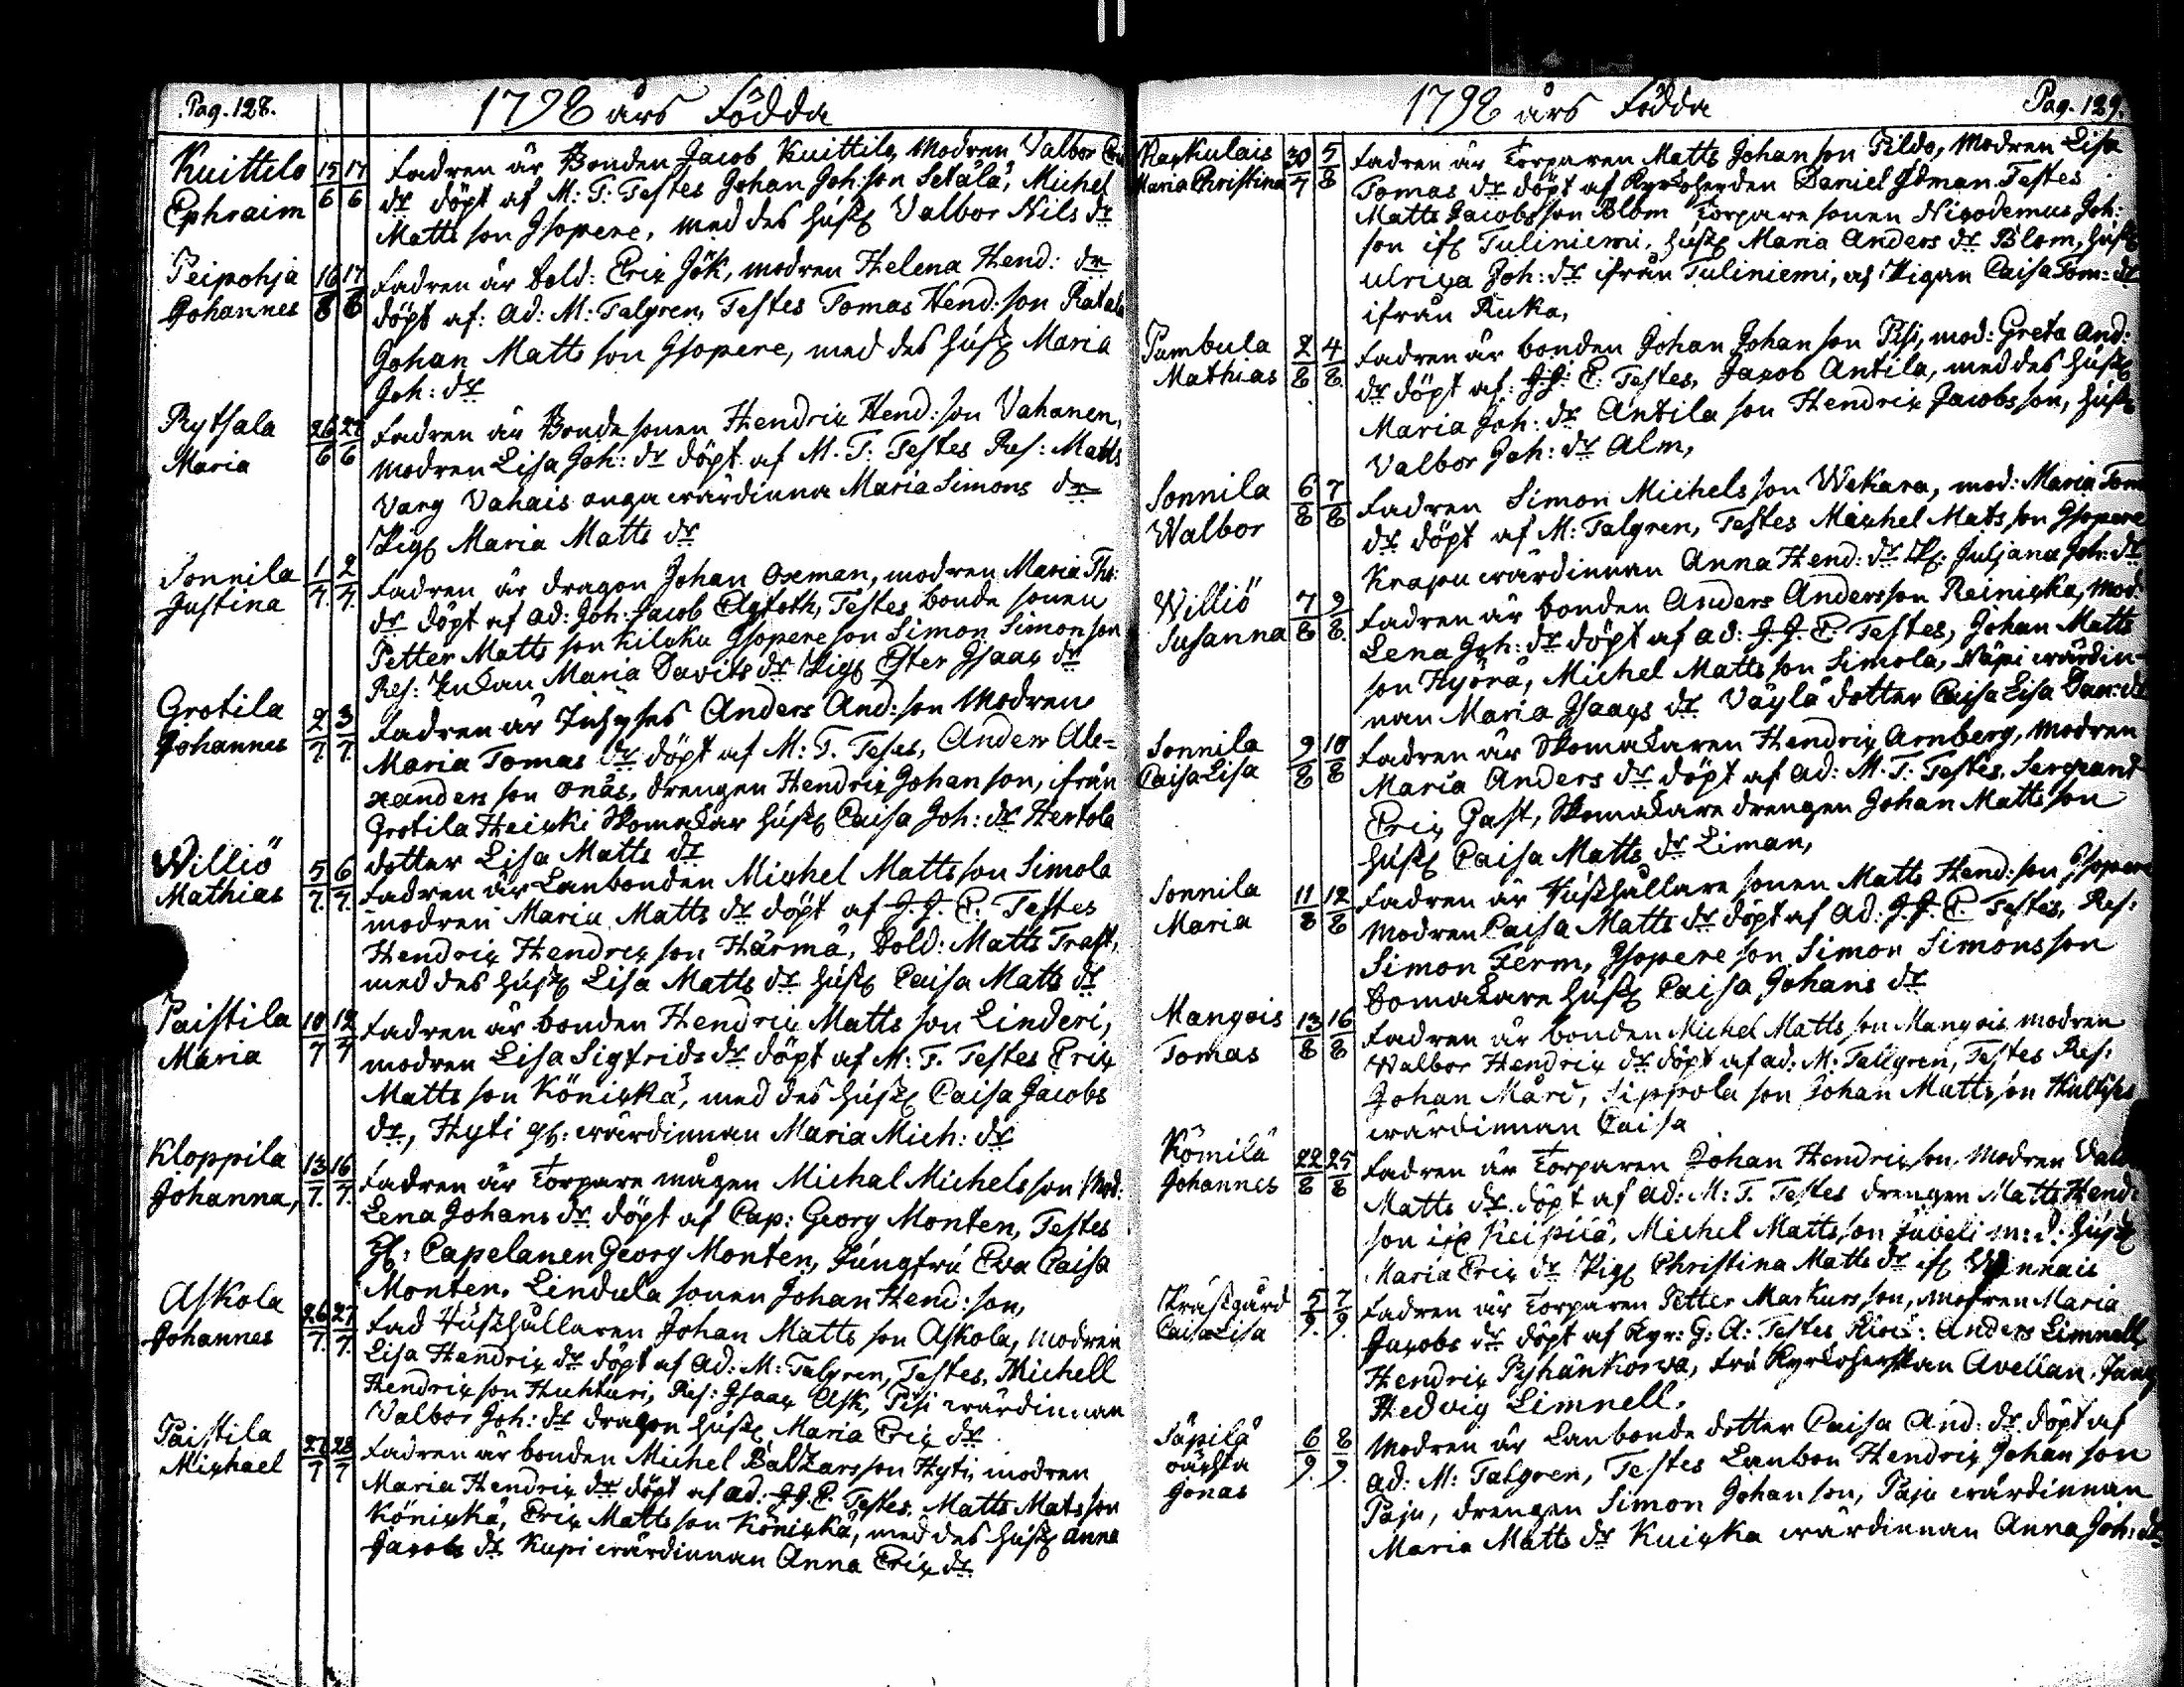 Pag. 128.
1798 års Födda
Kuittilo 15/6 17/6 Fadren är Bonden Jacob Kuittilo, Modren Valbor
Ephraim dr döpt af M: T: Testes Johan Joh:son Setälä, Michel
Matts son Isopere, med des hust Valbor Nils dr
Peipohja 16/8 17/8 Fadren är Sold: Eric Jök, modren Helena Hend: dr
Johannes döpt af: ad: M: Talgren, Testes Tomas Hend: son Ratala
Johan Matts son Isopere, med des hust Maria
Joh: dr
Rytsala 26/6 27/6 Fadren är Bonde sonen Hendric Hend: son Vahanen,
Maria modren Lisa Joh: dr döpt af M. T. Testes Res: Matts
Varg Vahais unga wärdinna Maria Simons dr
Pig Maria Matts dr
Sonnila 1/7. 2/7. Fadren är dragon Johan Oxman, modren Maria Tho:
Justina dr döpt af ad: Joh: Jacob Elgfoth, Testes bonde sonen
Petter Matts son Kiloku Isopere son Simon Simonson
Res: Enkan Maria Davids dr Pig Ester Isaac dr
Grotila 2/7. 3/7. Fadren är Inhyses Anders And: son Modren
Johannes Maria Tomas dr döpt af M: T. Testes, Anders Ale=
xanders son Onäs, drengen Hendric Johan son, ifrån
Grotila Heicki Skomakar hust Caisa Joh: dr Hertola
dotter Lisa Matts dr
Williö 5/7. 6/7. Fadren är Lanbonden Michel Matts son Simola
Mathias modren Maria Matts dr döpt af J. J. E. Testes
Hendric Hendric son Härmä, Sold: Matts Trast,
med des hust Lisa Matts dr hust Caisa Matts dr
Paistila 10/7 12/7 Fadren är bonden Hendric Matts son Linderi,
Maria modren Lisa Sigfrids dr döpt af M: T. Testes Eric
Matts son Könickä, med des hust Caisa Jacobs
dr, Hyti gl: wärdinnan Maria Mich: dr
Kloppila 13/7. 16/7. Fadren är Torpare mågen Michal Michels son Mod:
Johanna, Lena Johans dr döpt af Cap: Georg Monten, Testes
Gl: Capelanen Georg Monten, Jungfru Eva Caisa
Monten, Lindula sonen Johan Hend: son,
Askola 26/7. 27/7. Fad Hushållaren Johan Matts son Askola, modren
Johannes Lisa Hendric dr döpt af ad: M: Talgren, Testes, Michell
Hendric son Huhturi, Res: Isaac Ask, Pisi wärdinnan
Valbor Joh: dr dragon hust Maria Eric dr
Paistila 27/7 28/7 Fadren är bonden Michel Baltzars son Hyti, modren
Michael Maria Hendric dr döpt af ad: J. J. E. Testes, Matts Mats son
Könickä, Eric Matts son Könickä, med des hust anna
Jacobs dr Kupi wärdinnan Anna Eric dr
1798 års Födda
Pag. 129.
Karkulais 30/7 5/8 Fadren är Torparen Matts Johan son Pildo, Modren Lisa
Maria Christina Tomas dr döpt af Kyrkoherden Daniel Idman Testes
Matts Jacobs son Blom Torpare sonen Nicodemus Joh:
son if Tuliniemi, hust Maria Anders dr Blom, hust
Ulrica Joh: dr ifrån Tuliniemi, och Pigan Caisa Tom: dr
ifrån Ruka,
Pambula 2/8 4/8 Fadren är bonden Johan Johan son Pisi, mod: Greta And:
Mathias dr döpt af: J. J: E. Testes, Jacob Antila, med des hust
Maria Joh: dr Antila son Hendric Jacobs son, hust
Valbor Joh: dr Alm,
Sonnila 6/8 7/8 Fadren Simon Michels son Wekara, mod: Maria Tom
Walbor dr döpt af M: Talgren, Testes Michel Mats son Isopere
Krapu wärdinnan Anna Hend: dr P: Juljana Joh: dr
Williö 7/8 9/8. Fadren är bonden Anders Anders son Reinicka, Mod
Susanna Lena Joh: dr döpt af ad: J. J. E. Testes, Johan Matts
son Hyörä, Michel Matts son Simola, Näpi wärdin-
nan Maria Isaacs dr Väylä dotter Caisa Lisa Dan: dr
Sonnila 9/8 10/8 Fadren är Skomakaren Hendric Arnberg, modren
Caisa Lisa Maria Anders dr döpt af ad: M. T: Testes, Sergeand
Eric Gast, Skomakare drengen Johan Matts son
hust Caisa Matts dr Liman,
Sonnila 11/8 12/8 Fadren är Hushållare sonen Matts Hend: son Isopere
Maria Modren Caisa Matts dr döpt af ad: J. J. E. Testes, Res:
Simon Ferm, Isopere son Simon Simons son
Somakare hust Caisa Johans dr
Mangois 13/8 16/8 Fadren är bonden Michel Matts son Mangois modren
Tomas Walbor Hendric dr döpt af ad: M: Tallgren, Testes Res:
Johan Mård, Sippola son Johan Matts son
wärdinnan Caisa
Kömilä 22/8 25/8 Fadren är Torparen Johan Hendric son, Modren
Johannes Matts dr döpt af ad: M: T. Testes drengen Matts Hend:
son Michel Matts son Juveli m: d: hust
Maria Eric dr Pig Christina Matts dr if
Prästgård 5/9. 7/9. Fadren är Torparen Petter Markus son, modren Maria
Caisa Lisa Jacobs dr döpt af Kyr: G: A: Testes Anders Limnell
Hendric Pyhänkorva, Fru Kyrkoherskan Avellan, Jung
Hedvig Limnell.
Säpilä 6/9. 8/9. Modren är Lanbonde dotter Caisa And: dr döpt af
oäckta ad: M: Talgren, Testes Lanbon Hendric Johan son
Jonas Paju, drengen Simon Johan son, Paju wärdinnan
Maria Matts dr Kuicka wärdinnan Anna Joh: dr